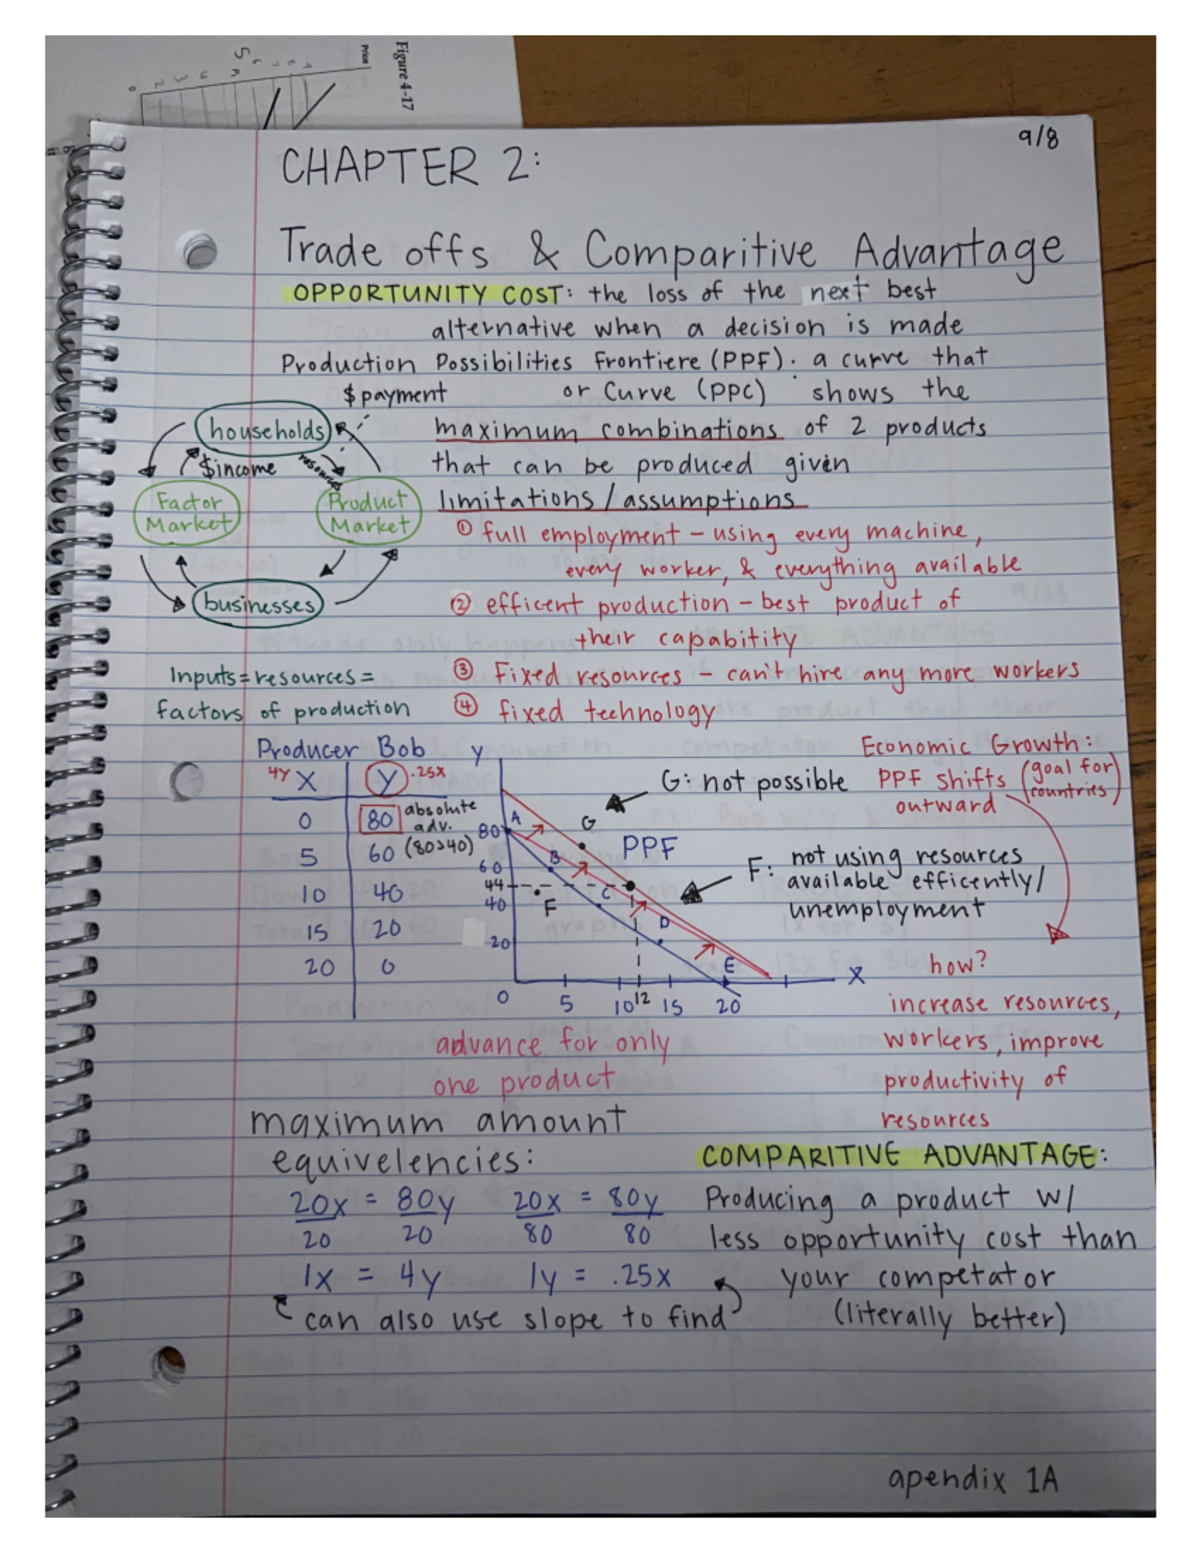 Figure 4-17
Price
9/8
CHAPTER 2:
Trade offs & Comparitive Advantage
OPPORTUNITY COST: the loss of the next best
alternative when a decision is made
Production Possibilities Frontiere (PPF): a curve that
or Curve (PPC) shows the
maximum combinations of 2 products
that can be produced given
limitations/assumptions
$ payment
households
$income
resources
Factor
Market
Product
Market
businesses
① full employment - using every machine,
every worker, & everything available
② efficent production - best product of
their capabitity
③ Fixed resources - can't hire any more workers
④ fixed technology
Inputs = resources =
factors of production
Producer Bob
4Y X Y .25X
0 80 absolute
adv.
5 60 (80>40)
10 40
15 20
20 0
Y
80 A
60 B
44
40 C
20 D
E
F
G
PPF
0 5 10 12 15 20 X
G: not possible
F: not using resources
available efficently/
unemployment
Economic Growth:
PPF shifts (goal for
outward countries)
how?
increase resources,
workers, improve
productivity of
resources
advance for only
one product
maximum amount
equivelencies:
20x = 80y 20x = 80y
20 20 80 80
1x = 4y 1y = .25x
can also use slope to find
COMPARITIVE ADVANTAGE:
Producing a product w/
less opportunity cost than
your competator
(literally better)
apendix 1A